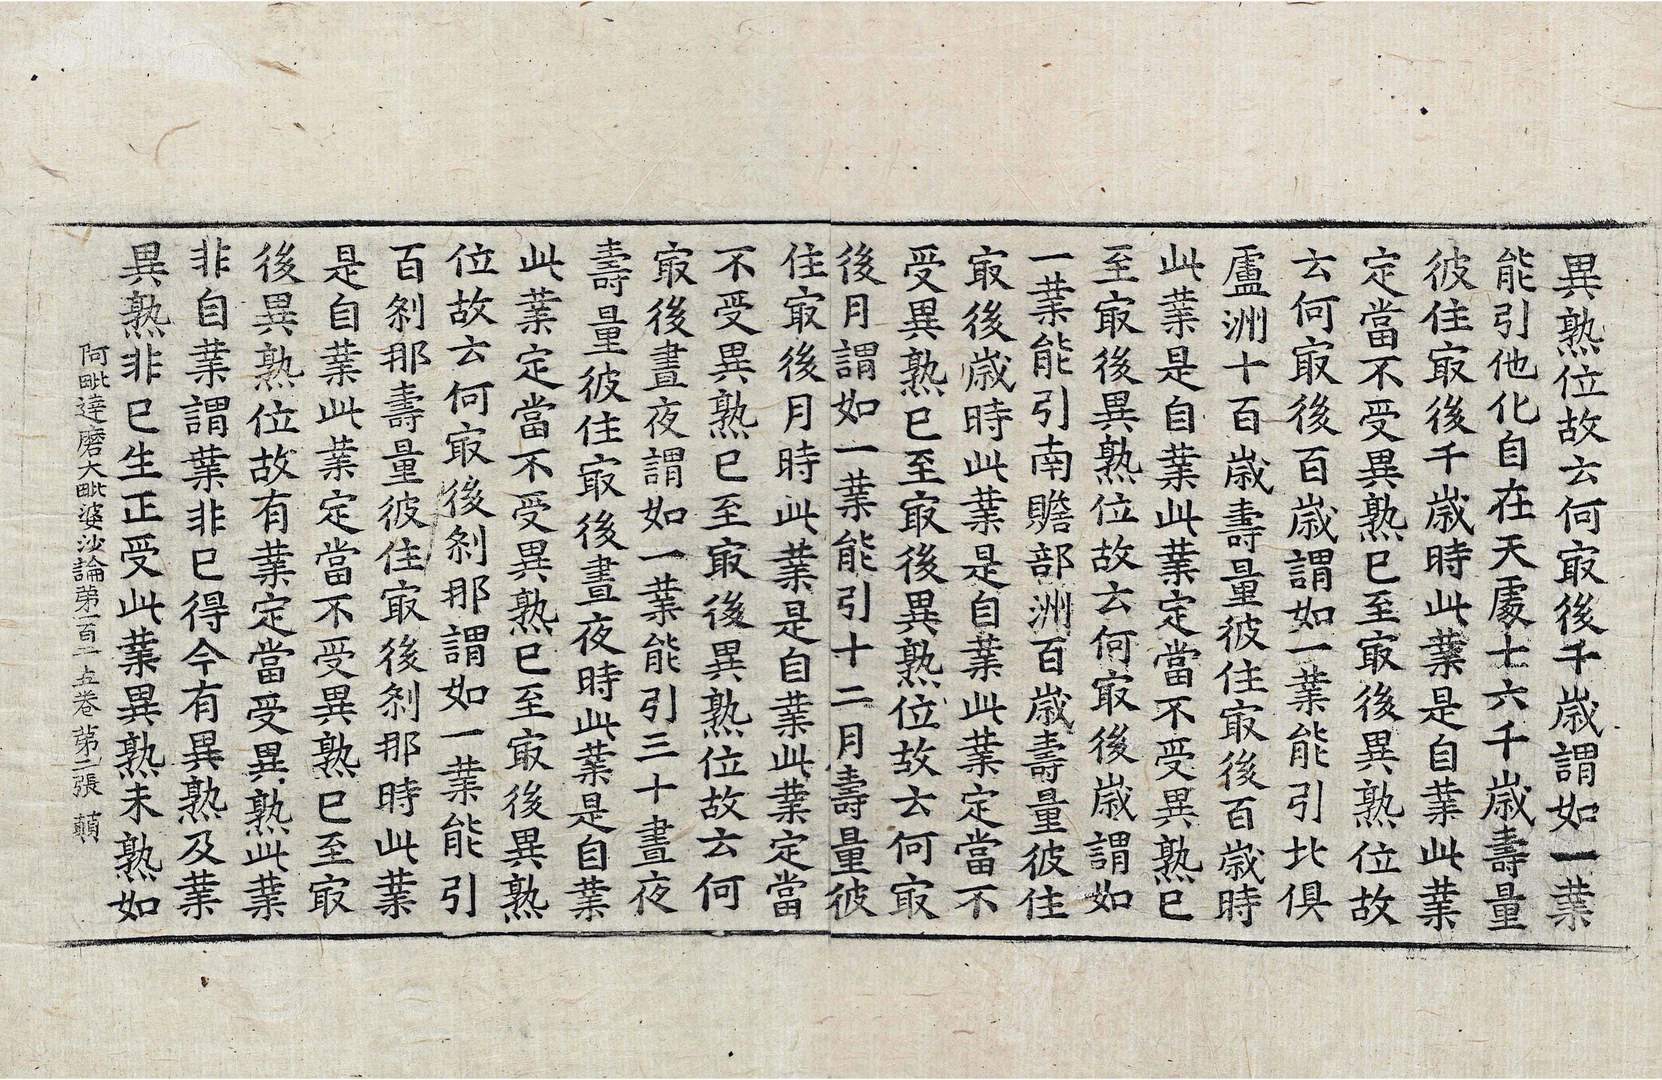 異熟位故云何㝡後千歲謂如一業
能引他化自在天處十六千歲壽量
彼住㝡後千歲時此業是自業此業
定當不受異熟已至㝡後異熟位故
云何㝡後百歲謂如一業能引北俱
盧洲十百歲壽量彼住㝡後百歲時
此業是自業此業定當不受異熟已
至㝡後異熟位故云何㝡後歲謂如
一業能引南贍部洲百歲壽量彼住
㝡後歲時此業是自業此業定當不
受異熟已至㝡後異熟位故云何㝡
後月謂如一業能引十二月壽量彼
住㝡後月時此業是自業此業定當
不受異熟已至㝡後異熟位故云何
㝡後晝夜謂如一業能引三十晝夜
壽量彼住㝡後晝夜時此業是自業
此業定當不受異熟已至㝡後異熟
位故云何㝡後剎那謂如一業能引
百剎那壽量彼住㝡後剎那時此業
是自業此業定當不受異熟已至㝡
後異熟位故有業定當受異熟此業
非自業謂業非已得今有異熟及業
異熟非已生正受此業異熟未熟如
阿毗達磨大毗婆沙論第一百二十五卷 第二張 顛